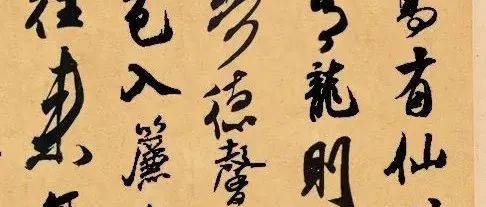 高有仙
有龍則
吾德馨
色入簾
往來無